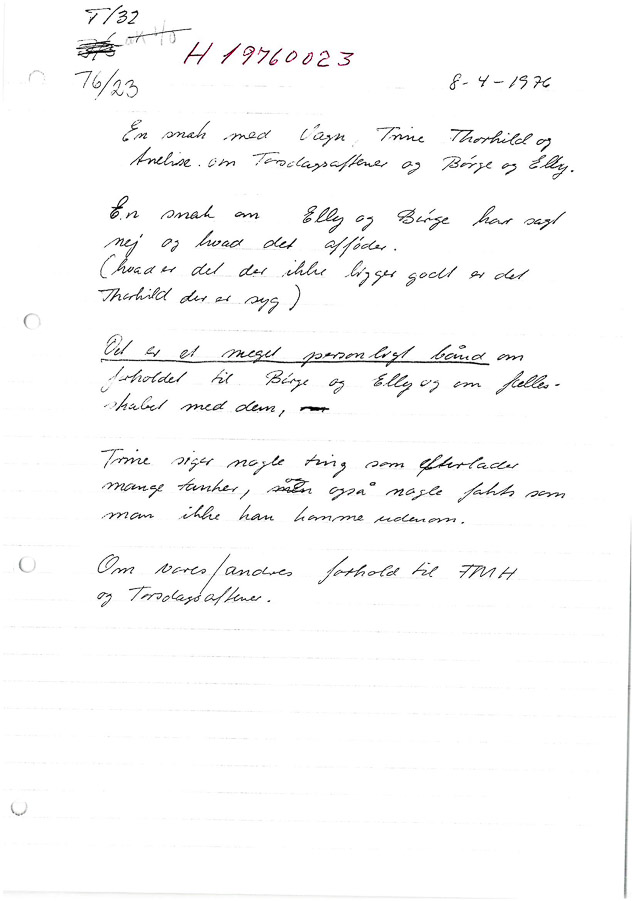 T/32
H 19760023
76/23
8-4-1976
En snak med Vagn, Trine Thorhild og
Anelise. om Torsdagsaftener og Börge og Elly.
En snak om Elly og Börge har sagt
nej og hvad det afføder.
(hvad er det der ikke ligger godt er det
Thorhild der er syg)
Det er et meget personligt bånd om
forholdet til Börge og Elly og om fælles-
skabet med dem,
Trine siger nogle ting som efterlader
mange tanker, men også nogle fakts som
man ikke kan komme udenom.
Om vores/andres forhold til FMH
og Torsdagsaftener.